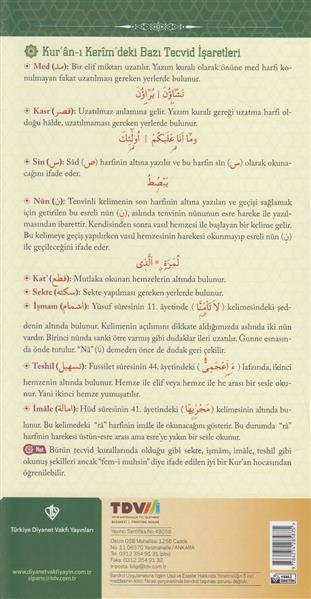 Kur'ân-ı Kerîm'deki Bazı Tecvid İşaretleri
Med (مد): Bir elif miktarı uzatılır. Yazım kuralı olarak önüne med harfi ko-
nulmayan fakat uzatılması gereken yerlerde bulunur.
Kasr (قصر): Uzatılmaz anlamına gelir. Yazım kuralı gereği uzatma harfi ol-
duğu hâlde, uzatılmaması gereken yerlerde bulunur.
وَمَٓا اَنَا۬ عَلَيْكُمْ | اُو۬لٰٓئِكَ
Sîn (س): Sâd (ص) harfinin altına yazılır ve bu harfin sîn (س) olarak okuna-
cağını ifade eder.
يَبْصُۣطُ
Nûn (ن): Tenvinli kelimenin son harfinin altına yazılan ve geçişi sağlamak
için getirilen bu esreli nûn (نِ), aslında tenvinin nûnunun esre hareke ile yazıl-
masından ibarettir. Kendisinden sonra vasıl hemzesi ile başlayan bir kelime gelir.
Bu kelimeye geçiş yapılırken vasıl hemzesinin harekesi okunmayıp esreli nûn (نِ)
ile geçileceğini ifade eder.
لُمَزَةٍۙ ۨ اَلَّذ۪ي
Kat' (قطع): Mutlaka okunan hemzelerin altında bulunur.
Sekte (سكته): Sekte yapılması gereken yerlerde bulunur.
İşmam (اشمام): Yûsuf sûresinin 11. âyetinde (لَا تَأْمَنَّا) kelimesindeki şed-
denin altında bulunur. Kelimenin açılımını dikkate aldığımızda aslında iki nûn
vardır. Birinci nûnda sanki ötre varmış gibi dudaklar ileri uzatılır. Ğunne esnasın-
da önde tutulur. "Nâ" (نَا) demeden önce de dudak geri çekilir.
Teshîl (تسهيل): Fussilet sûresinin 44. âyetindeki (ءَاَۭعْجَمِيٌّ) lafzında, ikinci
hemzenin altında bulunur. Hemze ile elif veya hemze ile he arası bir sesle oku-
nur. Yani ikinci hemze yumuşatılır.
İmâle (امالة): Hûd sûresinin 41. âyetindeki (مَجْرٰۭۙيهَا) kelimesinin altında bu-
lunur. Bu kelimedeki "râ" harfinin imâle ile okunacağını gösterir. Bu durumda "râ"
harfinin harekesi üstün-esre arası ama esre'ye yakın bir sesle okunur.
Not Bütün tecvid kurallarında olduğu gibi sekte, işmâm, imâle, teshîl gibi
okunuş şekilleri ancak "fem-i muhsin" diye ifade edilen iyi bir Kur'an hocasından
öğrenilebilir.
Türkiye Diyanet Vakfı Yayınları
www.diyanetvakfiyayin.com.tr
siparis@tdv.com.tr
TDV
Yayıncı Sertifika No:48058
Ostim OSB Mahallesi 1256 Cadde
No: 11 06370 Yenimahalle / ANKARA
Tel: 0312 354 91 31 (pbx)
Fax: 0312 354 91 32